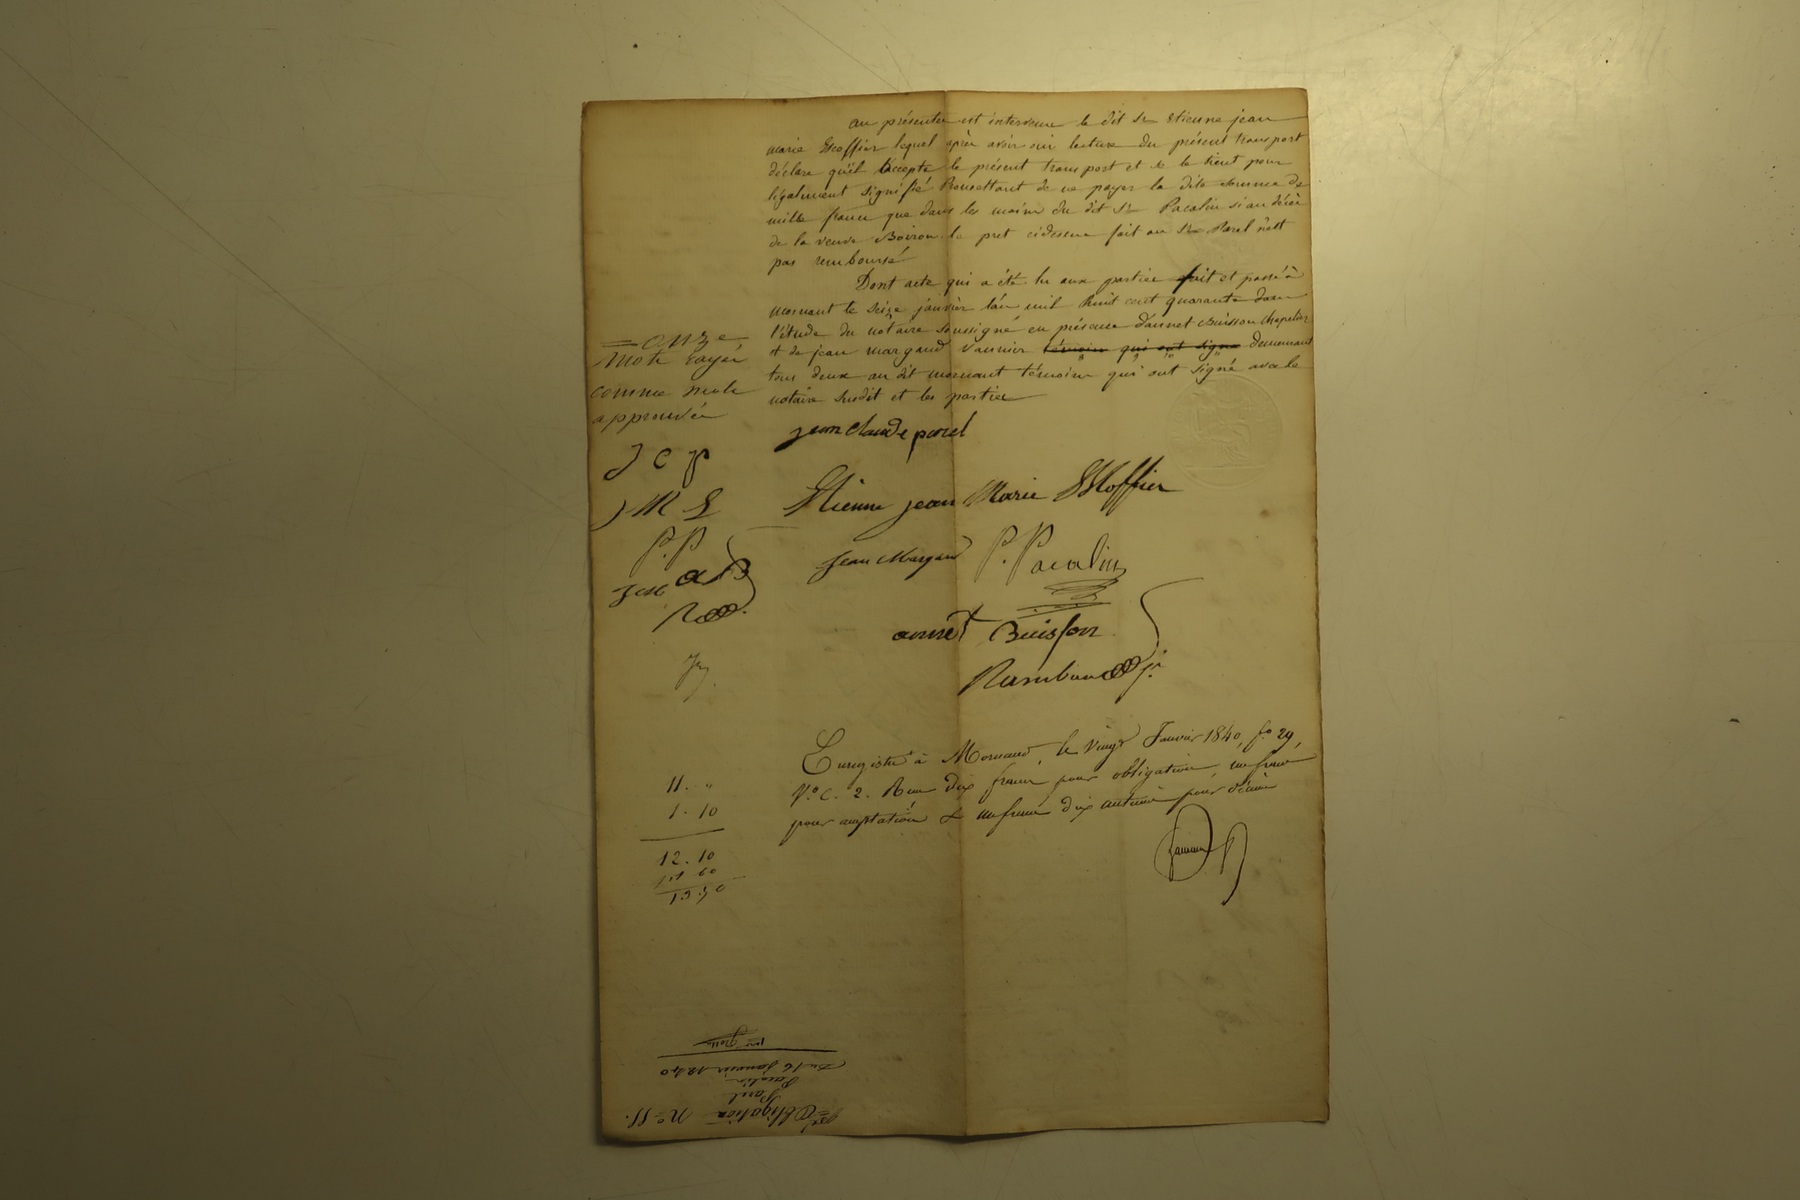 au présentes est intervenu le dit Sr Etienne jean
marie Escoffier lequel après avoir oui lecture du présent transport
déclare qu'il l'accepte le présent transport et le tient pour
légalement signifié Promettant de ne payer la dite somme de
mille francs que dans les mains du dit Sr Pacalin si au décès
de la veuve Boiron le pret cidessus fait au Sr Parel n'est
pas remboursé
Dont acte qui a été lu aux parties fait et passé à
mornant le seize janvier l'an mil huit cent quarante dans
l'étude du notaire soussigné en présence d'annet Buisson chapelier
et de jean margand vannier témoins qui ont signé demeurant
tous deux au dit mornant témoins qui ont signé avec le
notaire susdit et les parties
= onze
mots rayés
comme nuls
approuvés
J C p
J M E
P. P
J M a B
R
jean Claude parel
Etienne jean Marie Escoffier
Jean Margand P. Pacalin
annet Buisson
Rambaud jr
Enregistré à Mornant, le vingt Janvier 1840, fo 29,
Vo c. 2. Reçu dix francs pour obligation, un franc
pour acceptation & un franc dix centimes pour décime
11. "
1. 10
12. 10
1.40
13.50
Obligation no 11.
Parel
Pacalin
Du 16 janvier 1840